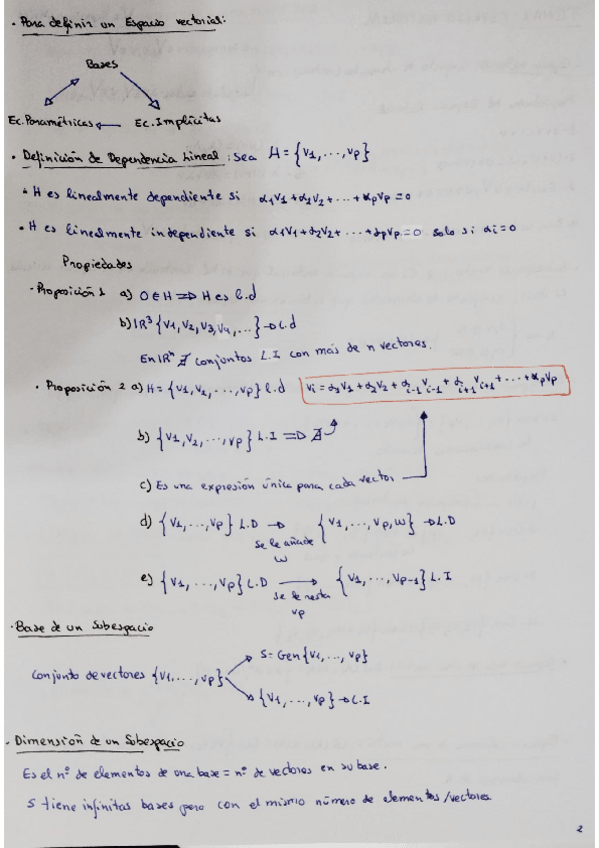 · Para definir un Espacio vectorial:
Bases
Ec. Paramétricas ← Ec. Implícitas
· Definición de Dependencia Lineal: Sea H = {v1, ..., vp}
· H es linealmente dependiente si α1v1 + α2v2 + ... + αpvp = 0
· H es linealmente independiente si α1v1 + α2v2 + ... + αpvp = 0 solo si αi = 0
Propiedades
· Proposición 1 a) O ∈ H ⇒ H es l.d
b) IR³ {v1, v2, v3, v4, ...} → L.d
En IRⁿ ∄ conjuntos L.I con más de n vectores.
· Proposición 2 a) H = {v1, v2, ..., vp} l.d vi = α1v1 + α2v2 + αi-1 vi-1 + αi+1 vi+1 + ... + αpvp
b) {v1, v2, ..., vp} L.I ⇒ ∄
c) Es una expresión única para cada vector
d) {v1, ..., vp} L.D → {v1, ..., vp, w} → L.D
se le añade
w
e) {v1, ..., vp} L.D → {v1, ..., vp-1} L.I
se le resta
vp
· Base de un Subespacio
S = Gen{v1, ..., vp}
Conjunto de vectores {v1, ..., vp}
{v1, ..., vp} → L.I
· Dimensión de un Subespacio
Es el nº de elementos de una base = nº de vectores en su base.
S tiene infinitas bases pero con el mismo número de elementos/vectores
2